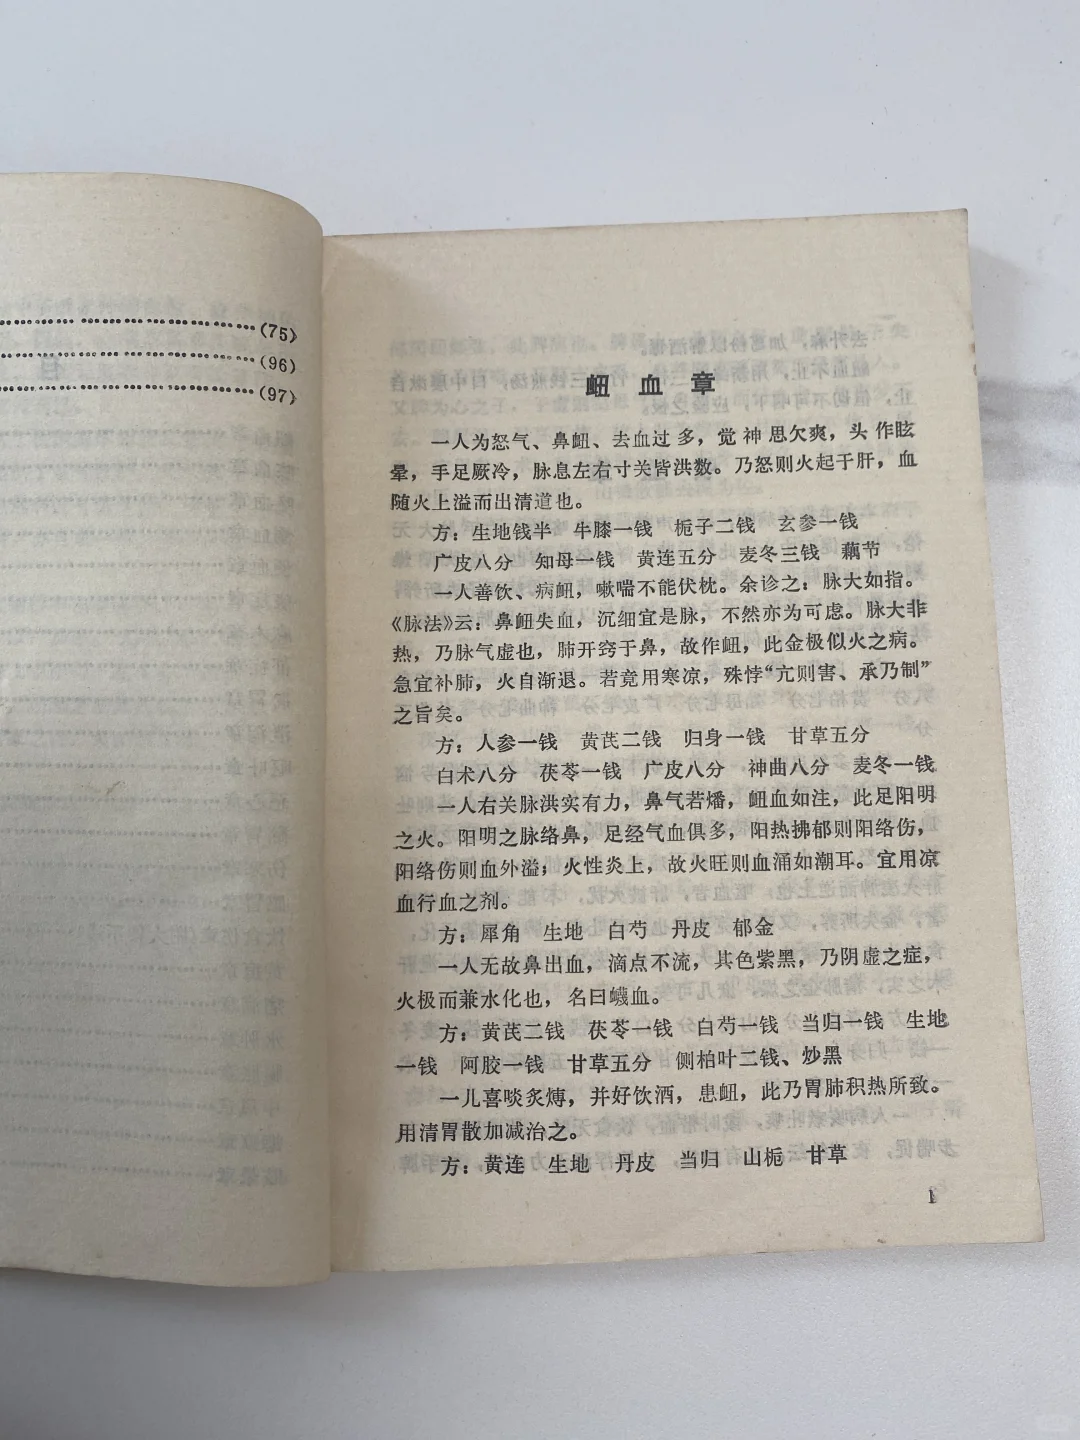 (75)
(96)
(97)
衄血章
一人为怒气、鼻衄、去血过多，觉神思欠爽，头作眩
晕，手足厥冷，脉息左右寸关皆洪数。乃怒则火起于肝，血
随火上溢而出清道也。
方：生地钱半　牛膝一钱　栀子二钱　玄参一钱
广皮八分　知母一钱　黄连五分　麦冬三钱　藕节
一人善饮、病衄，嗽喘不能伏枕。余诊之：脉大如指。
《脉法》云：鼻衄失血，沉细宜是脉，不然亦为可虑。脉大非
热，乃脉气虚也，肺开窍于鼻，故作衄，此金极似火之病。
急宜补肺，火自渐退。若竟用寒凉，殊悖“亢则害、承乃制”
之旨矣。
方：人参一钱　黄芪二钱　归身一钱　甘草五分
白术八分　茯苓一钱　广皮八分　神曲八分　麦冬一钱
一人右关脉洪实有力，鼻气若燔，衄血如注，此足阳明
之火。阳明之脉络鼻，足经气血俱多，阳热拂郁则阳络伤，
阳络伤则血外溢；火性炎上，故火旺则血涌如潮耳。宜用凉
血行血之剂。
方：犀角　生地　白芍　丹皮　郁金
一人无故鼻出血，滴点不流，其色紫黑，乃阴虚之症，
火极而兼水化也，名曰衊血。
方：黄芪二钱　茯苓一钱　白芍一钱　当归一钱　生地
一钱　阿胶一钱　甘草五分　侧柏叶二钱、炒黑
一儿喜啖炙煿，并好饮酒，患衄，此乃胃肺积热所致。
用清胃散加减治之。
方：黄连　生地　丹皮　当归　山栀　甘草
1